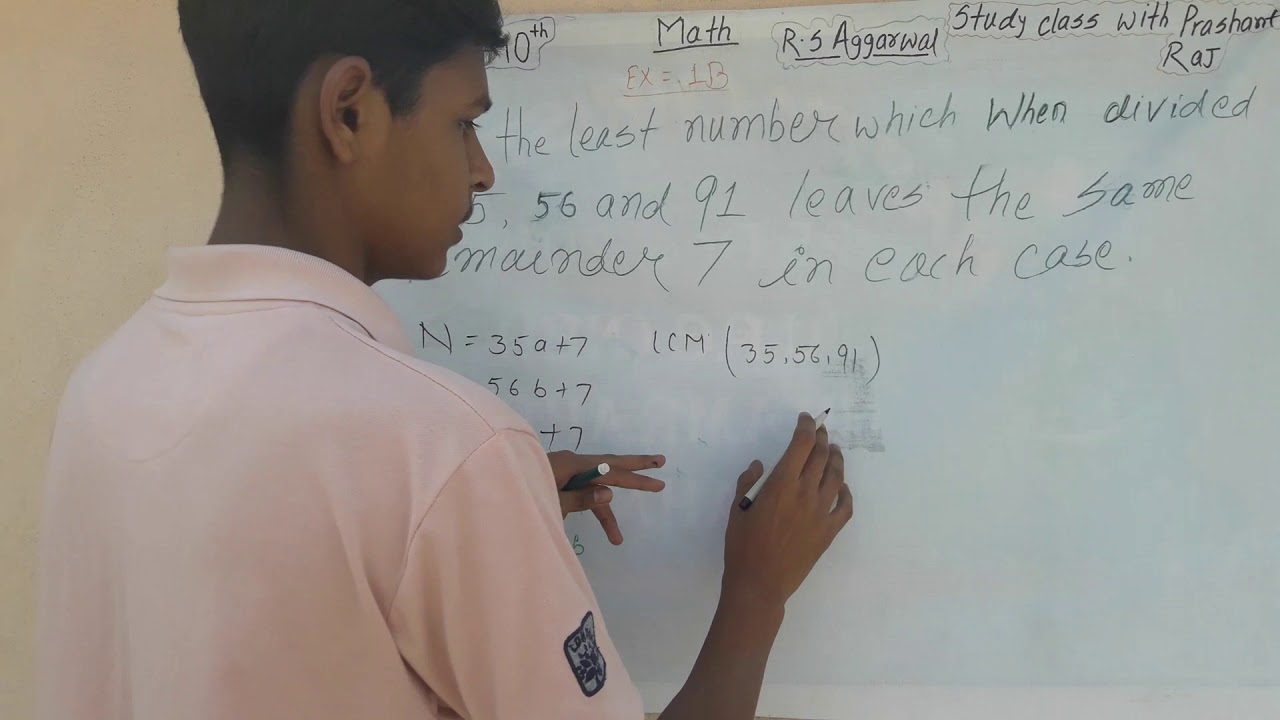 10th Math R.S Aggarwal Study class with Prashant
Raj
EX = 1B
the least number which When divided
5, 56 and 91 leaves the same
mainder 7 in each case.
N = 35a+7 LCM (35,56,91)
56b+7
+7